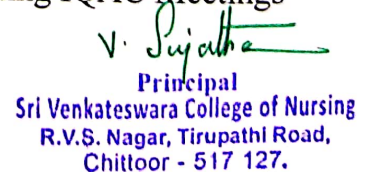 IQAC Meetings
V. Sujatha
Principal
Sri Venkateswara College of Nursing
R.V.S. Nagar, Tirupathi Road,
Chittoor - 517 127.